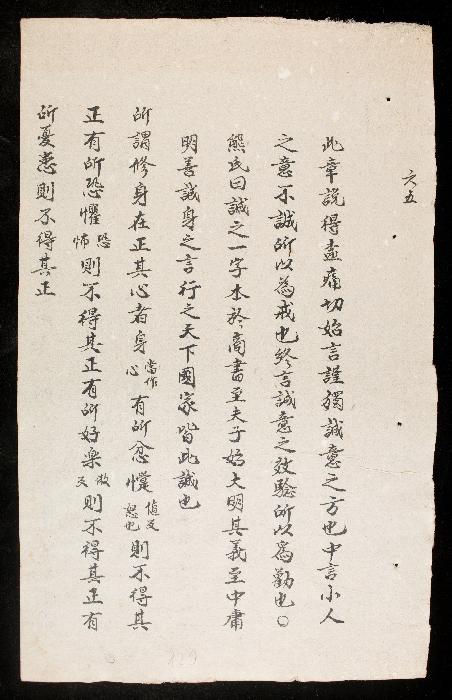 六五
此章說得痛切始言謹獨誠意之方也中言小人
之意不誠所以為戒也終言誠意之效驗所以為勸也〇
熊氏曰誠之一字本於商書至夫子始大明其義至中庸
明善誠身之言行之天下國家皆此誠也
所謂修身在正其心者身當作心有所忿懥值反怒也則不得其
正有所恐懼恐怖則不得其正有所好樂反則不得其正有
所憂患則不得其正